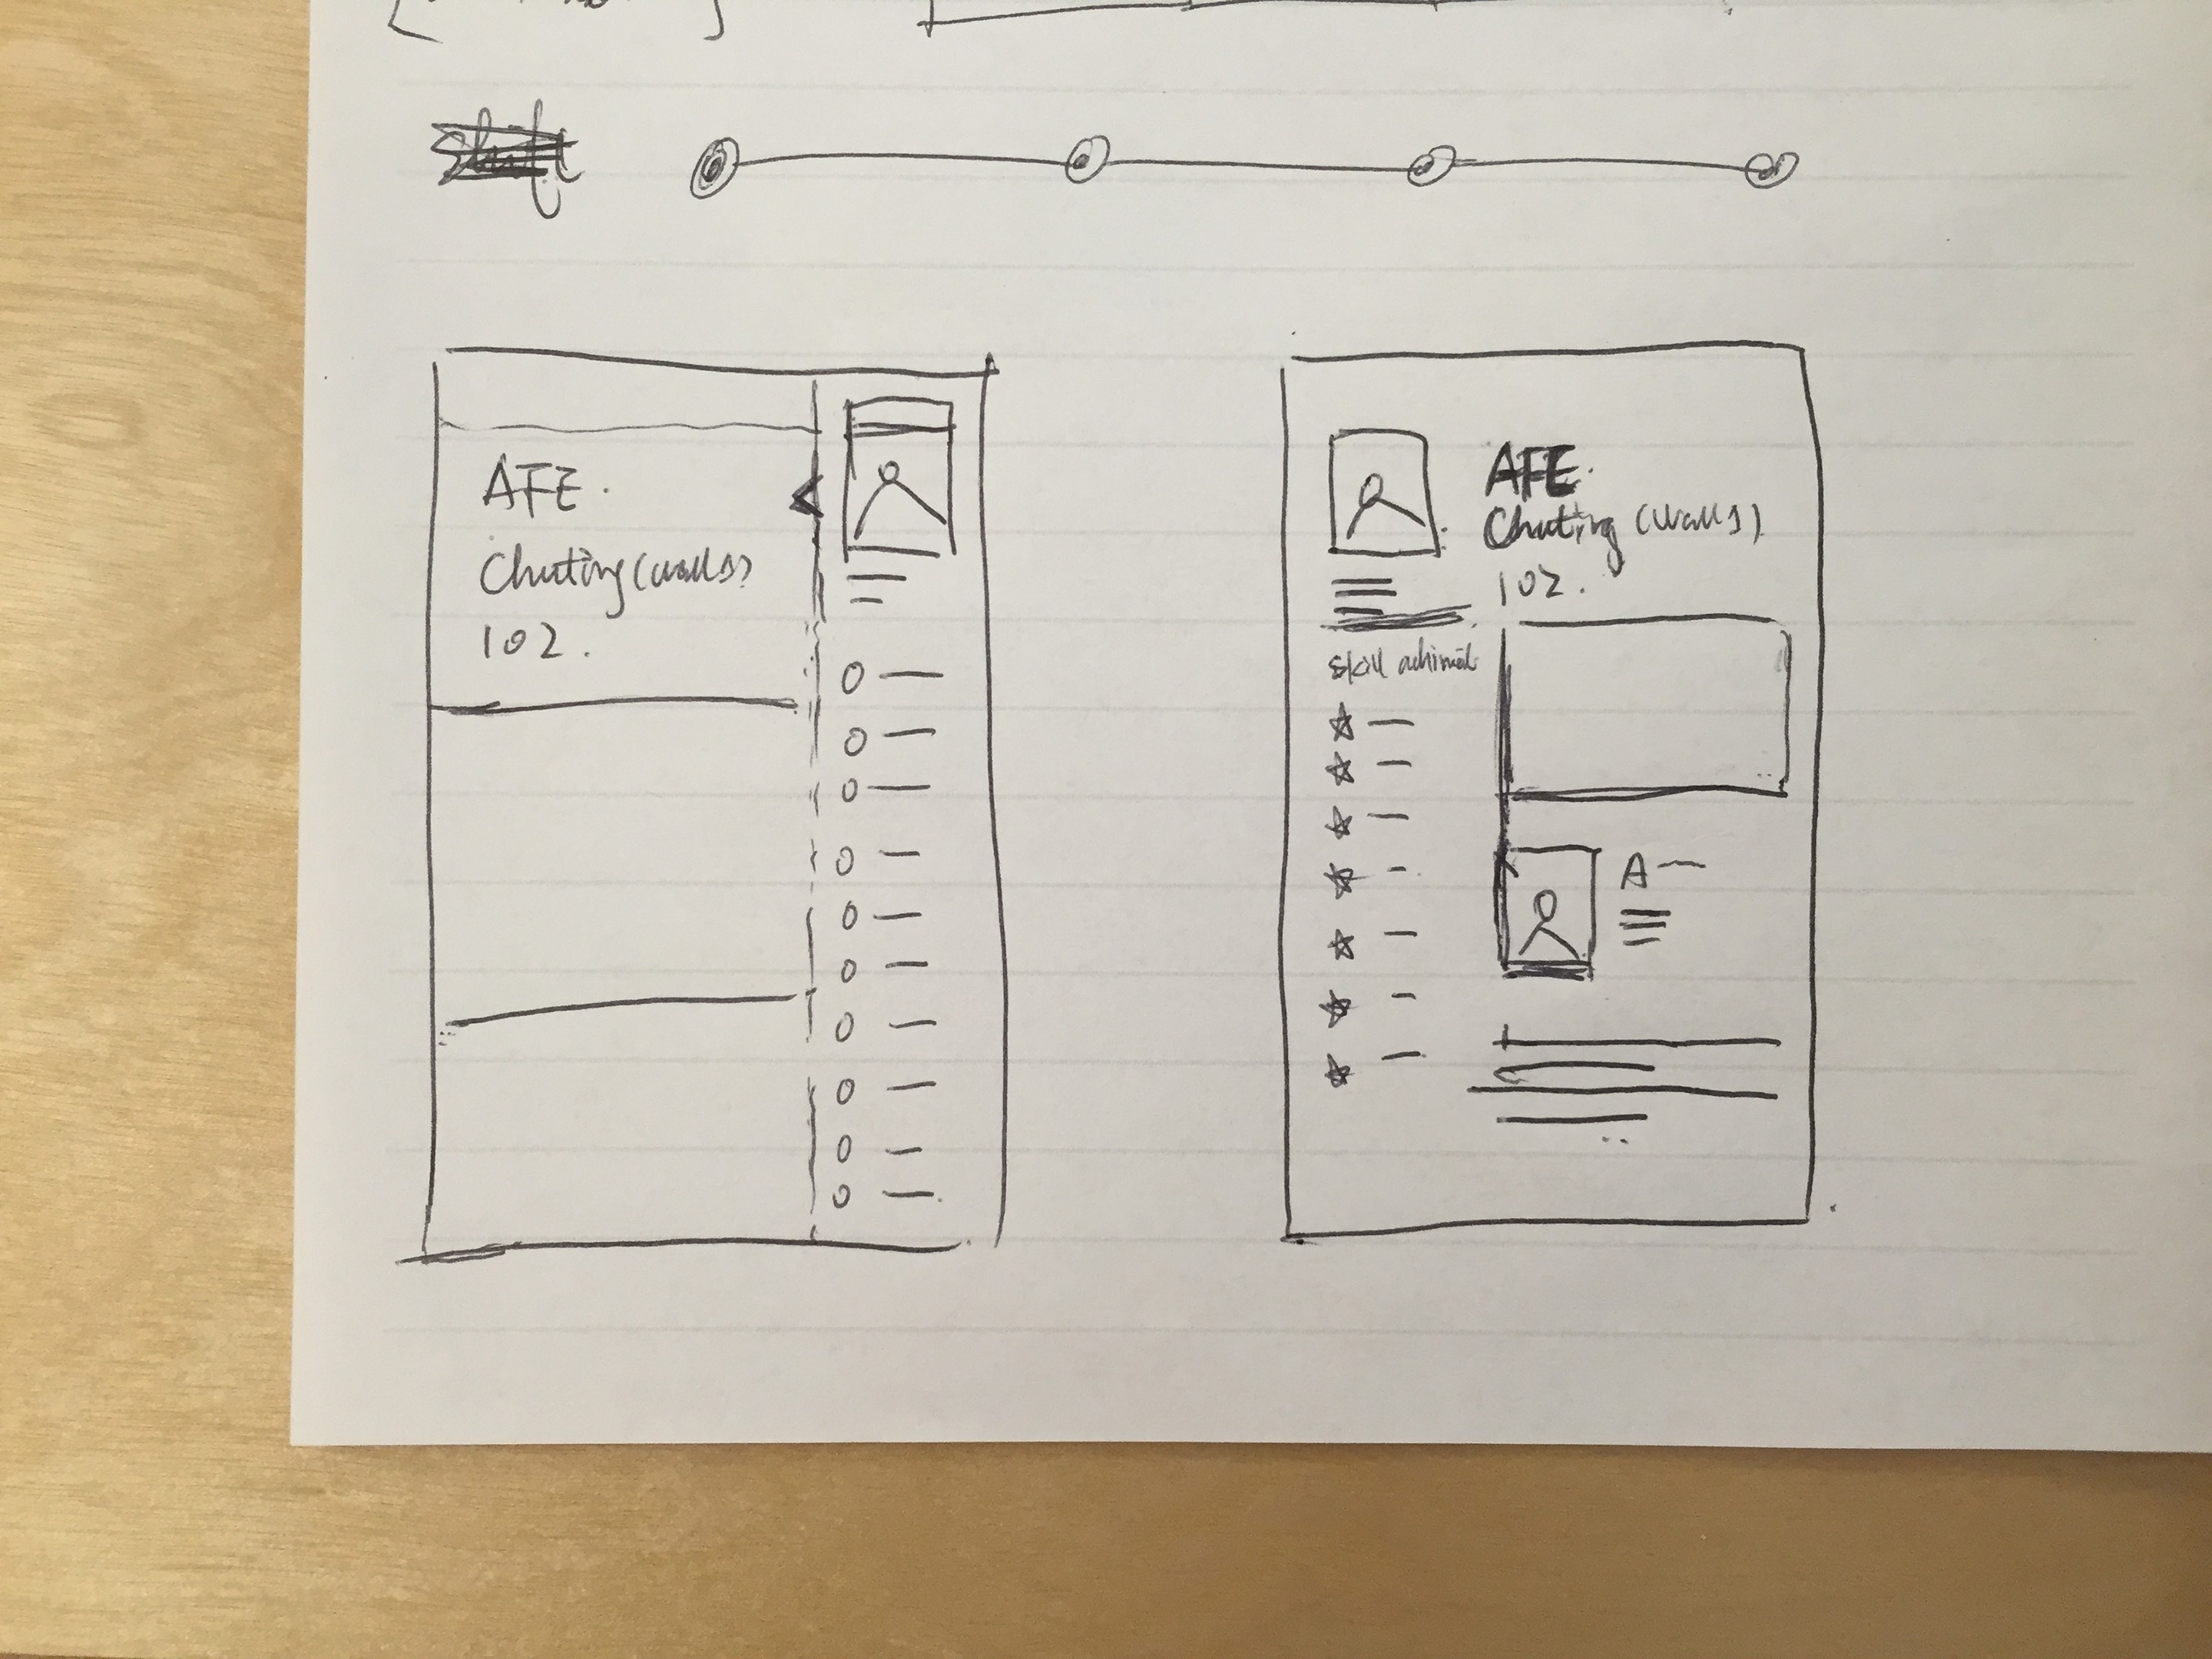 AFE.
Chuting (walls)
102.
AFE.
Chuting (walls)
102.
skill
A